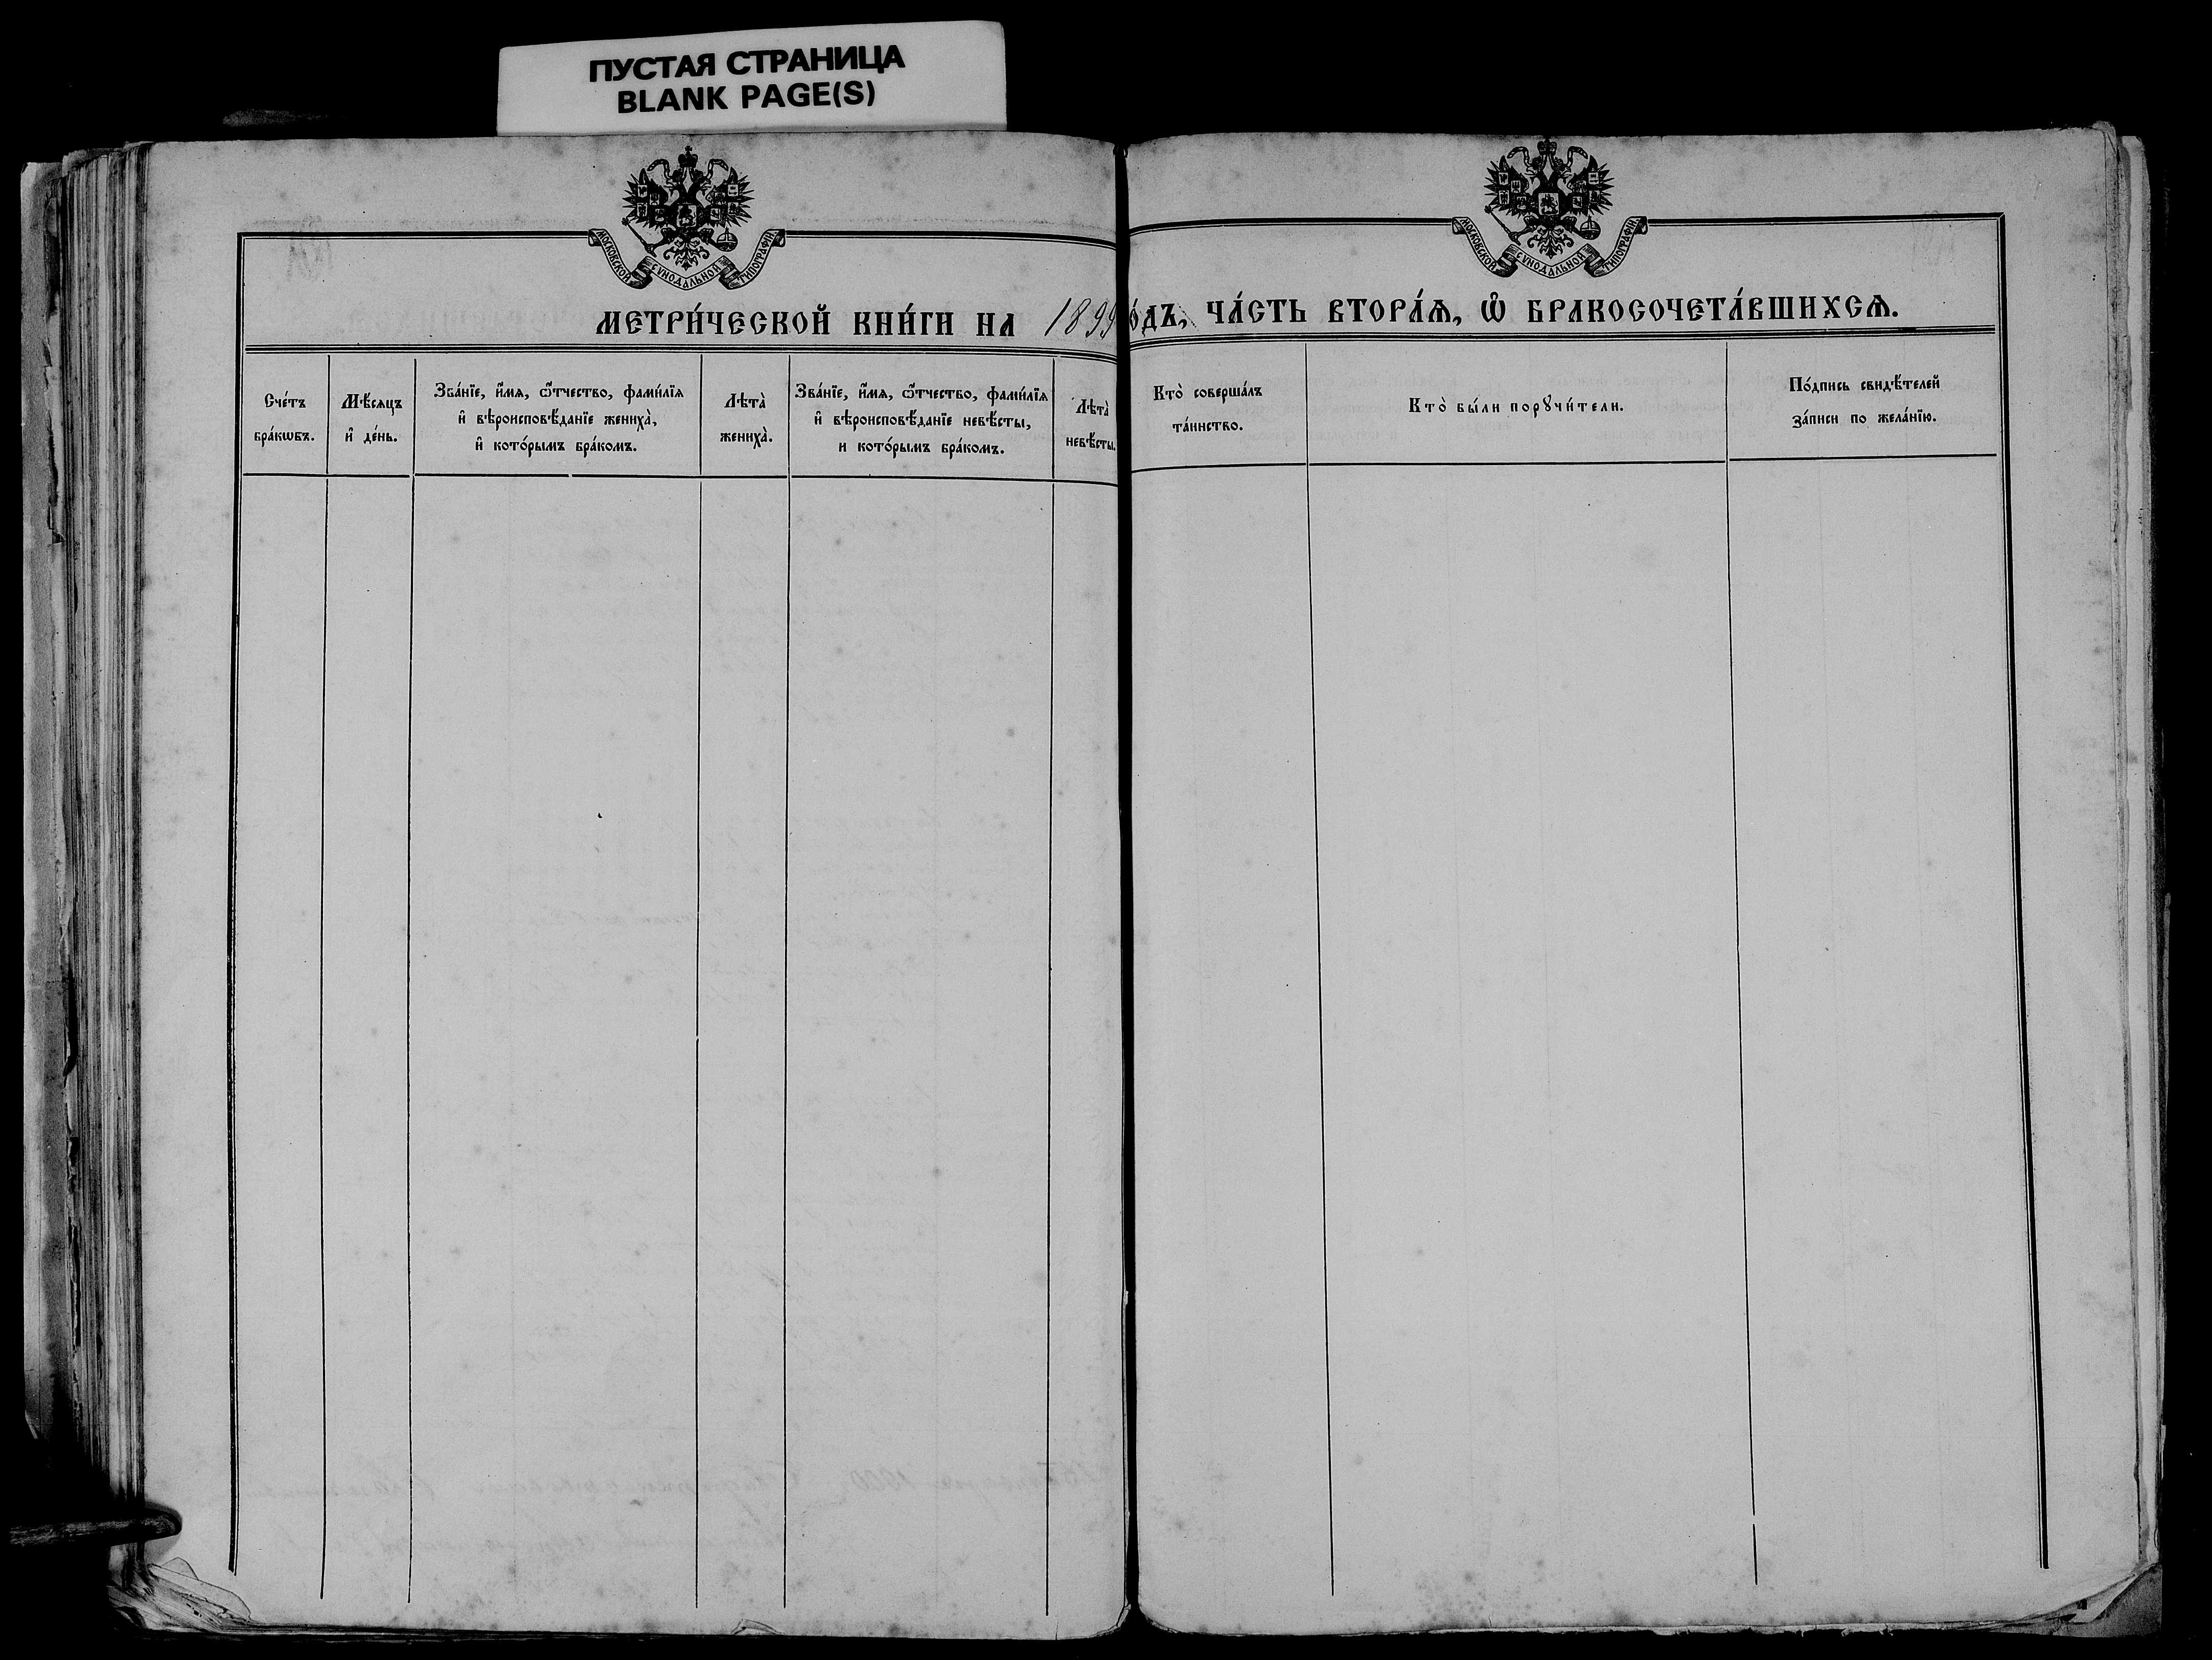 ПУСТАЯ СТРАНИЦА
BLANK PAGE(S)
МОСКОВСКОЙ СѴНОДАЛЬНОЙ ТИПОГРАФІИ.
МОСКОВСКОЙ СѴНОДАЛЬНОЙ ТИПОГРАФІИ.
МЕТРИ́ЧЕСКОЙ КНИ́ГИ НА 1899
О́ДЪ, ЧА́СТЬ ВТОРА́Ѧ, Ѽ БРАКОСОЧЕТА́ВШИХСѦ.
Сче́тъ
бра́кѡвъ.
Мѣ́сяцъ
и҆ де́нь.
Зва́нїе, и҆́мя, ѻ҆́тчество, фами́лїя
и҆ вѣроисповѣ́данїе жениха̀,
и҆ кото́рымъ бра́комъ.
Лѣта̀
жениха̀.
Зва́нїе, и҆́мя, ѻ҆́тчество, фами́лїя
и҆ вѣроисповѣ́данїе невѣ́сты,
и кото́рымъ бра́комъ.
Лѣта̀
невѣ́сты.
Кто̀ соверша́лъ
та́инство.
Кто̀ бы́ли порꙋчи́тели.
По́дпись свидѣ́телей
за́писи по жела́нїю.